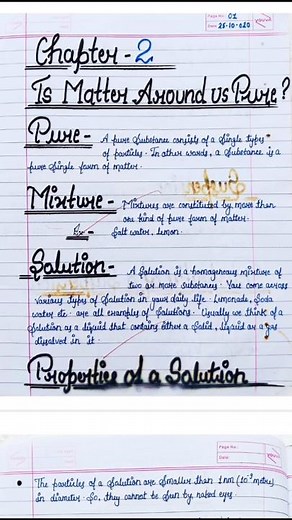 Page No.: 01
Date: 25-10-020
Chapter - 2
Is Matter Around us Pure?
Pure - A pure substance consists of a single types
of particles. In other words, a substance is a
pure single form of matter.
Mixture - Mixtures are constituted by more than
one kind of pure form of matter.
Ex - Salt water, lemon.
Solution - A solution is a homogeneous mixture of
two or more substances. You come across
various types of solution in your daily life. Lemonade, Soda
water etc. are all examples of solutions. Usually we think of a
solution as a liquid that contains either a solid, liquid or a gas
dissolved in it.
Properties of a Solution
Page No.:
Date:
• The particles of a solution are smaller than 1 nm (10⁻⁹ metre)
in diameter. So, they cannot be seen by naked eyes.